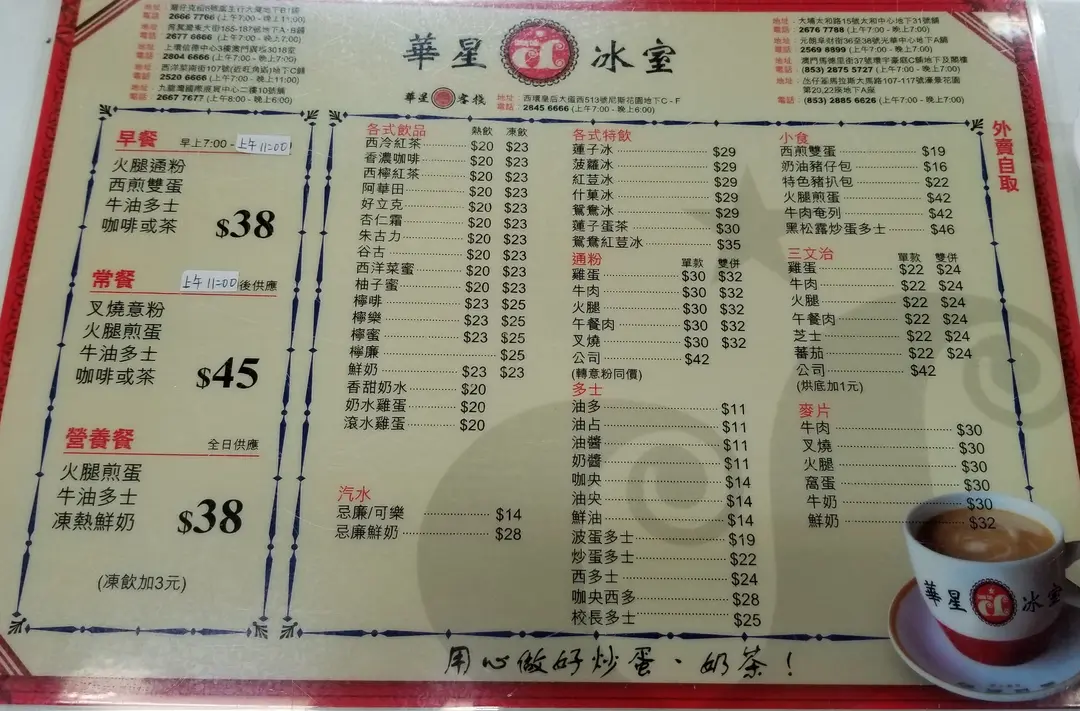 地址：灣仔克街6號廣生行大廈地下B1舖
電話：2666 7766 (上午7:00 - 晚上11:00)
大街185-187號地下A-B舖
電話：2677 6666 (上午7:00 - 晚上7:00)
地址：上環信德中心3樓澳門碼頭301B室
電話：2804 6666 (上午7:00 - 晚上7:00)
地址：西洋菜南街107號(近旺角區)地下C舖
電話：2520 6666 (上午7:00 - 晚上11:00)
地址：九龍灣國際展貿中心二樓10號舖
電話：2667 7677 (上午8:00 - 晚上6:00)
華星 冰室
華星 客棧
地址：西環皇后大道西513號尼斯花園地下C-F
電話：2845 6666 (上午7:00 - 晚上6:00)
地址：大埔太和路15號太和中心地下31號舖
電話：2676 7788 (上午7:00 - 晚上7:00)
地址：元朗阜財街36至38號光華中心地下A舖
電話：2569 8899 (上午7:00 - 晚上7:00)
地址：澳門馬德里街37號環宇豪庭C舖地下及閣樓
電話：(853) 2875 5727 (上午7:00 - 晚上7:00)
地址：氹仔孫逸仙博士大馬路
第20,22座地下A座
電話：(853) 2885 6626 (上午7:00 - 晚上7:00)
外賣自取
早餐 早上7:00 - 上午11:00
火腿通粉
西煎雙蛋
牛油多士
咖啡或茶 $38
常餐 上午11:00後供應
叉燒意粉
火腿煎蛋
牛油多士
咖啡或茶 $45
營養餐 全日供應
火腿煎蛋
牛油多士
凍熱鮮奶 $38
(凍飲加3元)
各式飲品 熱飲 凍飲
西冷紅茶 $20 $23
香濃咖啡 $20 $23
西檸紅茶 $20 $23
阿華田 $20 $23
好立克 $20 $23
杏仁霜 $20 $23
朱古力 $20 $23
谷古 $20 $23
西洋菜蜜 $20 $23
柚子蜜 $20 $23
檸啡 $23 $25
檸樂 $23 $25
檸蜜 $23 $25
檸廉 $25
鮮奶 $23 $23
香甜奶水 $20
奶水雞蛋 $20
滾水雞蛋 $20
汽水
忌廉/可樂 $14
忌廉鮮奶 $28
各式特飲
蓮子冰 $29
菠蘿冰 $29
紅荳冰 $29
什菓冰 $29
鴛鴦冰 $29
蓮子蛋茶 $30
鴛鴦紅荳冰 $35
通粉 單款 雙併
雞蛋 $30 $32
牛肉 $30 $32
火腿 $30 $32
午餐肉 $30 $32
叉燒 $30 $32
公司 $42
(轉意粉同價)
多士
油多 $11
油占 $11
油醬 $11
奶醬 $11
咖央 $14
油央 $14
鮮油 $14
波蛋多士 $19
炒蛋多士 $22
西多士 $24
咖央西多 $28
校長多士 $25
小食
西煎雙蛋 $19
奶油豬仔包 $16
特色豬扒包 $22
火腿煎蛋 $42
牛肉奄列 $42
黑松露炒蛋多士 $46
三文治 單款 雙併
雞蛋 $22 $24
牛肉 $22 $24
火腿 $22 $24
午餐肉 $22 $24
芝士 $22 $24
蕃茄 $22 $24
公司 $42
(烘底加1元)
麥片
牛肉 $30
叉燒 $30
火腿 $30
窩蛋 $30
牛奶 $30
鮮奶 $32
華星 冰室
用心做好炒蛋、奶茶！